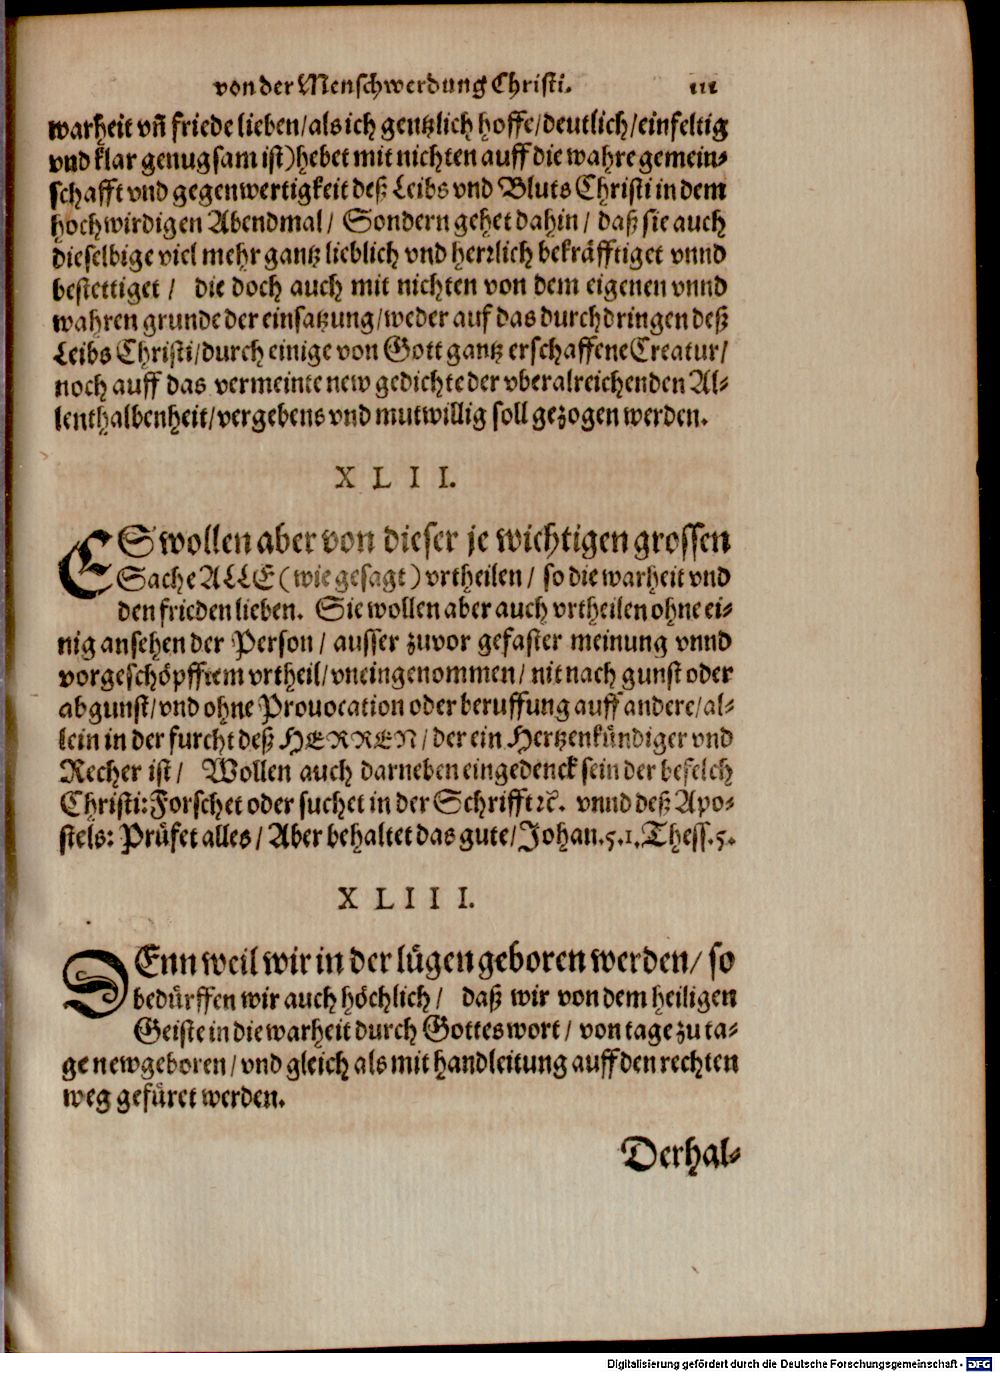 von der Menschwerdung Christi. 111
warheit vñ friede lieben/als ich gentzlich hoffe/deutlich/einfeltig
vnd klar genugsam ist) hebet mit nichten auff die wahre gemein-
schafft vnd gegenwertigkeit deß Leibs vnd Bluts Christi in dem
hochwirdigen Abendmal/ Sondern gehet dahin/ daß sie auch
dieselbige viel mehr gantz lieblich vnd herrlich bekräfftiget vnnd
bestettiget/ die doch auch mit nichten von dem eigenen vnnd
wahren grunde der einsatzung/weder auf das durchdringen deß
Leibs Christi/durch einige von Gott gantz erschaffene Creatur/
noch auff das vermeinte new gedichte der vberalreichenden Al-
lenthalbenheit/vergebens vnd mutwillig soll gezogen werden.
XLII.
ES wollen aber von dieser je wichtigen grossen
Sache ALLE (wie gesagt) vrtheilen/ so die warheit vnd
den frieden lieben. Sie wollen aber auch vrtheilen ohne ei-
nig ansehen der Person/ ausser zuvor gefaster meinung vnnd
vorgeschöpfftem vrtheil/vneingenommen/ nit nach gunst oder
abgunst/vnd ohne Prouocation oder beruffung auff andere/al-
lein in der furcht deß HERREN/der ein Hertzenkündiger vnd
Recher ist/ Wollen auch darneben eingedenck sein der befelch
Christi: Forschet oder suchet in der Schrifft ꝛc. vnnd deß Apo-
stels: Prüfet alles/ Aber behaltet das gute/Johan.5.1.Thess.5.
XLIII.
DEnn weil wir in der lügen geboren werden/ so
bedürffen wir auch höchlich/ daß wir von dem heiligen
Geiste in die warheit durch Gottes wort/ von tage zu ta-
ge new geboren/vnd gleich als mit handleitung auff den rechten
weg gefüret werden.
Derhal-
Digitalisierung gefördert durch die Deutsche Forschungsgemeinschaft - DFG